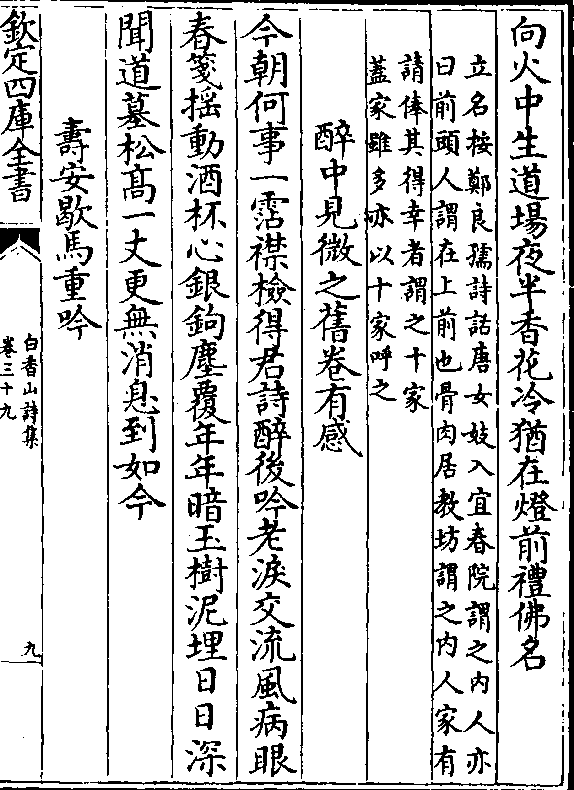 向火中生道場夜半香花冷猶在燈前禮佛名
立名按鄭良孺詩話唐女妓入宜春院謂之内人亦
曰前頭人謂在上前也骨肉居教坊謂之内人家有
請俸其得幸者謂之十家
蓋家雖多亦以十家呼之
醉中見微之舊卷有感
今朝何事一霑襟檢得君詩醉後吟老淚交流風病眼
春箋揺動酒杯心銀鉤塵覆年年暗玉樹泥埋日日深
聞道墓松髙一丈更無消息到如今
壽安歇馬重吟
欽定四庫全書
白香山詩集
卷三十九
九